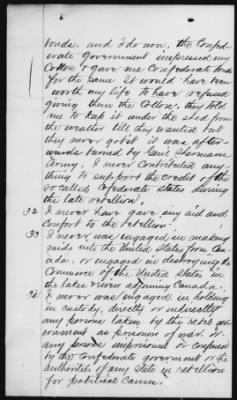 bonds. and I do now. the Confed-
erate Government impressed my
Cotton & gave me Confederate bonds
for the same It would have been
worth my life to have refused
giving them the Cotton. they told
me to keep it under the shed from
the weather till they wanted but
they never got it it was after-
wards burned by Genl Shermans
Army. I never Contributed any-
thing to support the credit of the
so called Confederate states during
the late rebellion.
32 I never have gave any aid and
Comfort to the rebellion.
33 I never was engaged in making
raids into the United States from Can-
ada. or engaged in destroying the
Commerce of the United States in
the lakes & rivers adjoining Canada.
34 I never was engaged in holding
in custody, directly or indirectly
any persons taken by the rebel gov-
ernment as prisoners of war. or
any persons imprisoned or confined
by the Confederate government or the
authorities of any State in rebellion
for political Causes.